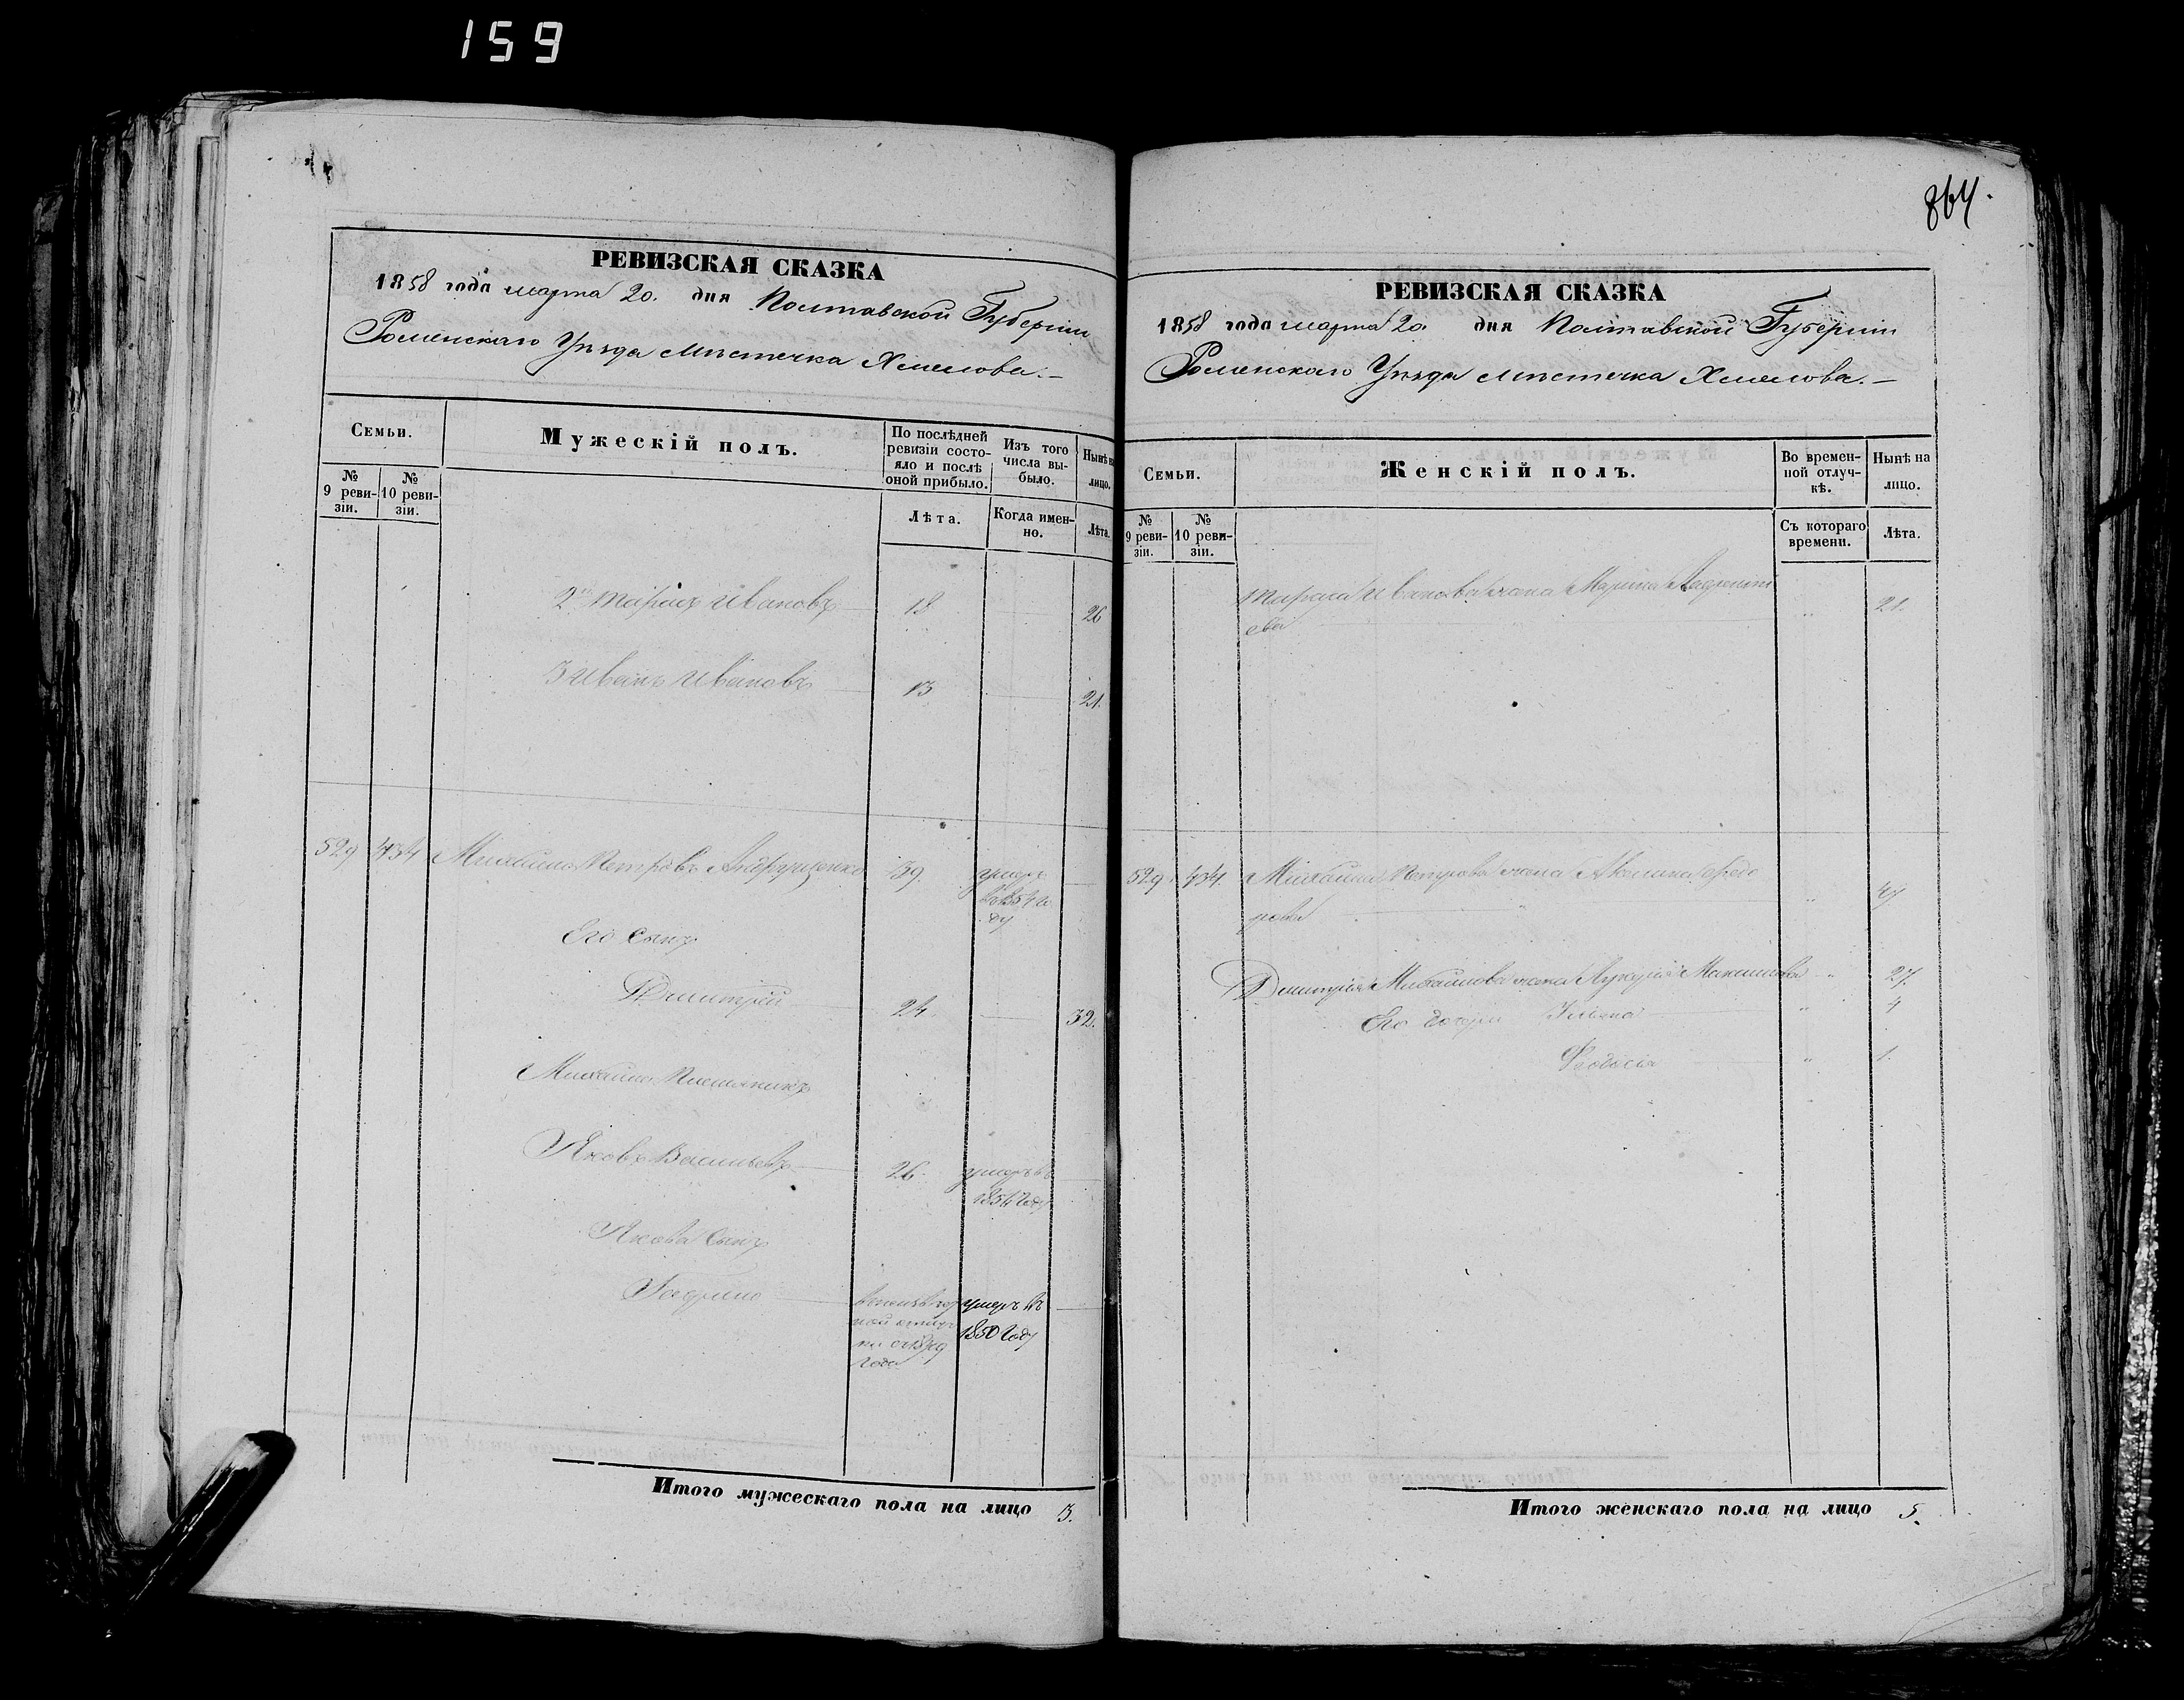 159
РЕВИЗСКАЯ СКАЗКА
1858 года марта 20. дня Полтавской Губерніи
Роменскаго Уѣзда мѣстечка Хмелова.—
Семьи.
Мужескій полъ.
По послѣдней ревизіи состо-
яло и послѣ оной прибыло.
Изъ того числа вы-
было.
Нынѣ на лицо.
№ 9 реви-
зіи.
№ 10 реви-
зіи.
Лѣта.
Когда имен-
но.
Лѣта.
2й Тарасъ Ивановъ 18 26
3 Иванъ Ивановъ 13 21.
529 434 Михайло Петровъ Андрущенко 39. умеръ
въ 1854 го
ду
Его сынъ
Дмитрій 24 32.
Михайла племянникъ
Яковъ Васильевъ 26. умеръ въ
1854 году
Якова сынъ
умеръ въ
1850 году
года
Итого мужескаго пола на лицо 3.
864.
РЕВИЗСКАЯ СКАЗКА
1858 года марта 20. дня Полтавской Губерніи
Роменскаго Уѣзда мѣстечка Хмелова.—
Семьи.
Женскій полъ.
Во времен-
ной отлуч-
кѣ.
Нынѣ на
лицо.
№ 9 реви-
зіи.
№ 10 реви-
зіи.
Съ котораго
времени.
Лѣта.
Тараса Иванова жена Марина Лавренті
ева „ 21.
529. 434. Михайла Петрова жена Акилина Федо
рова „ 47
Дмитрія Михайлова жена Максимова „ 27.
Его дочери Ульяна „ 4
Феодосія „ 1.
Итого женскаго пола на лицо 5.